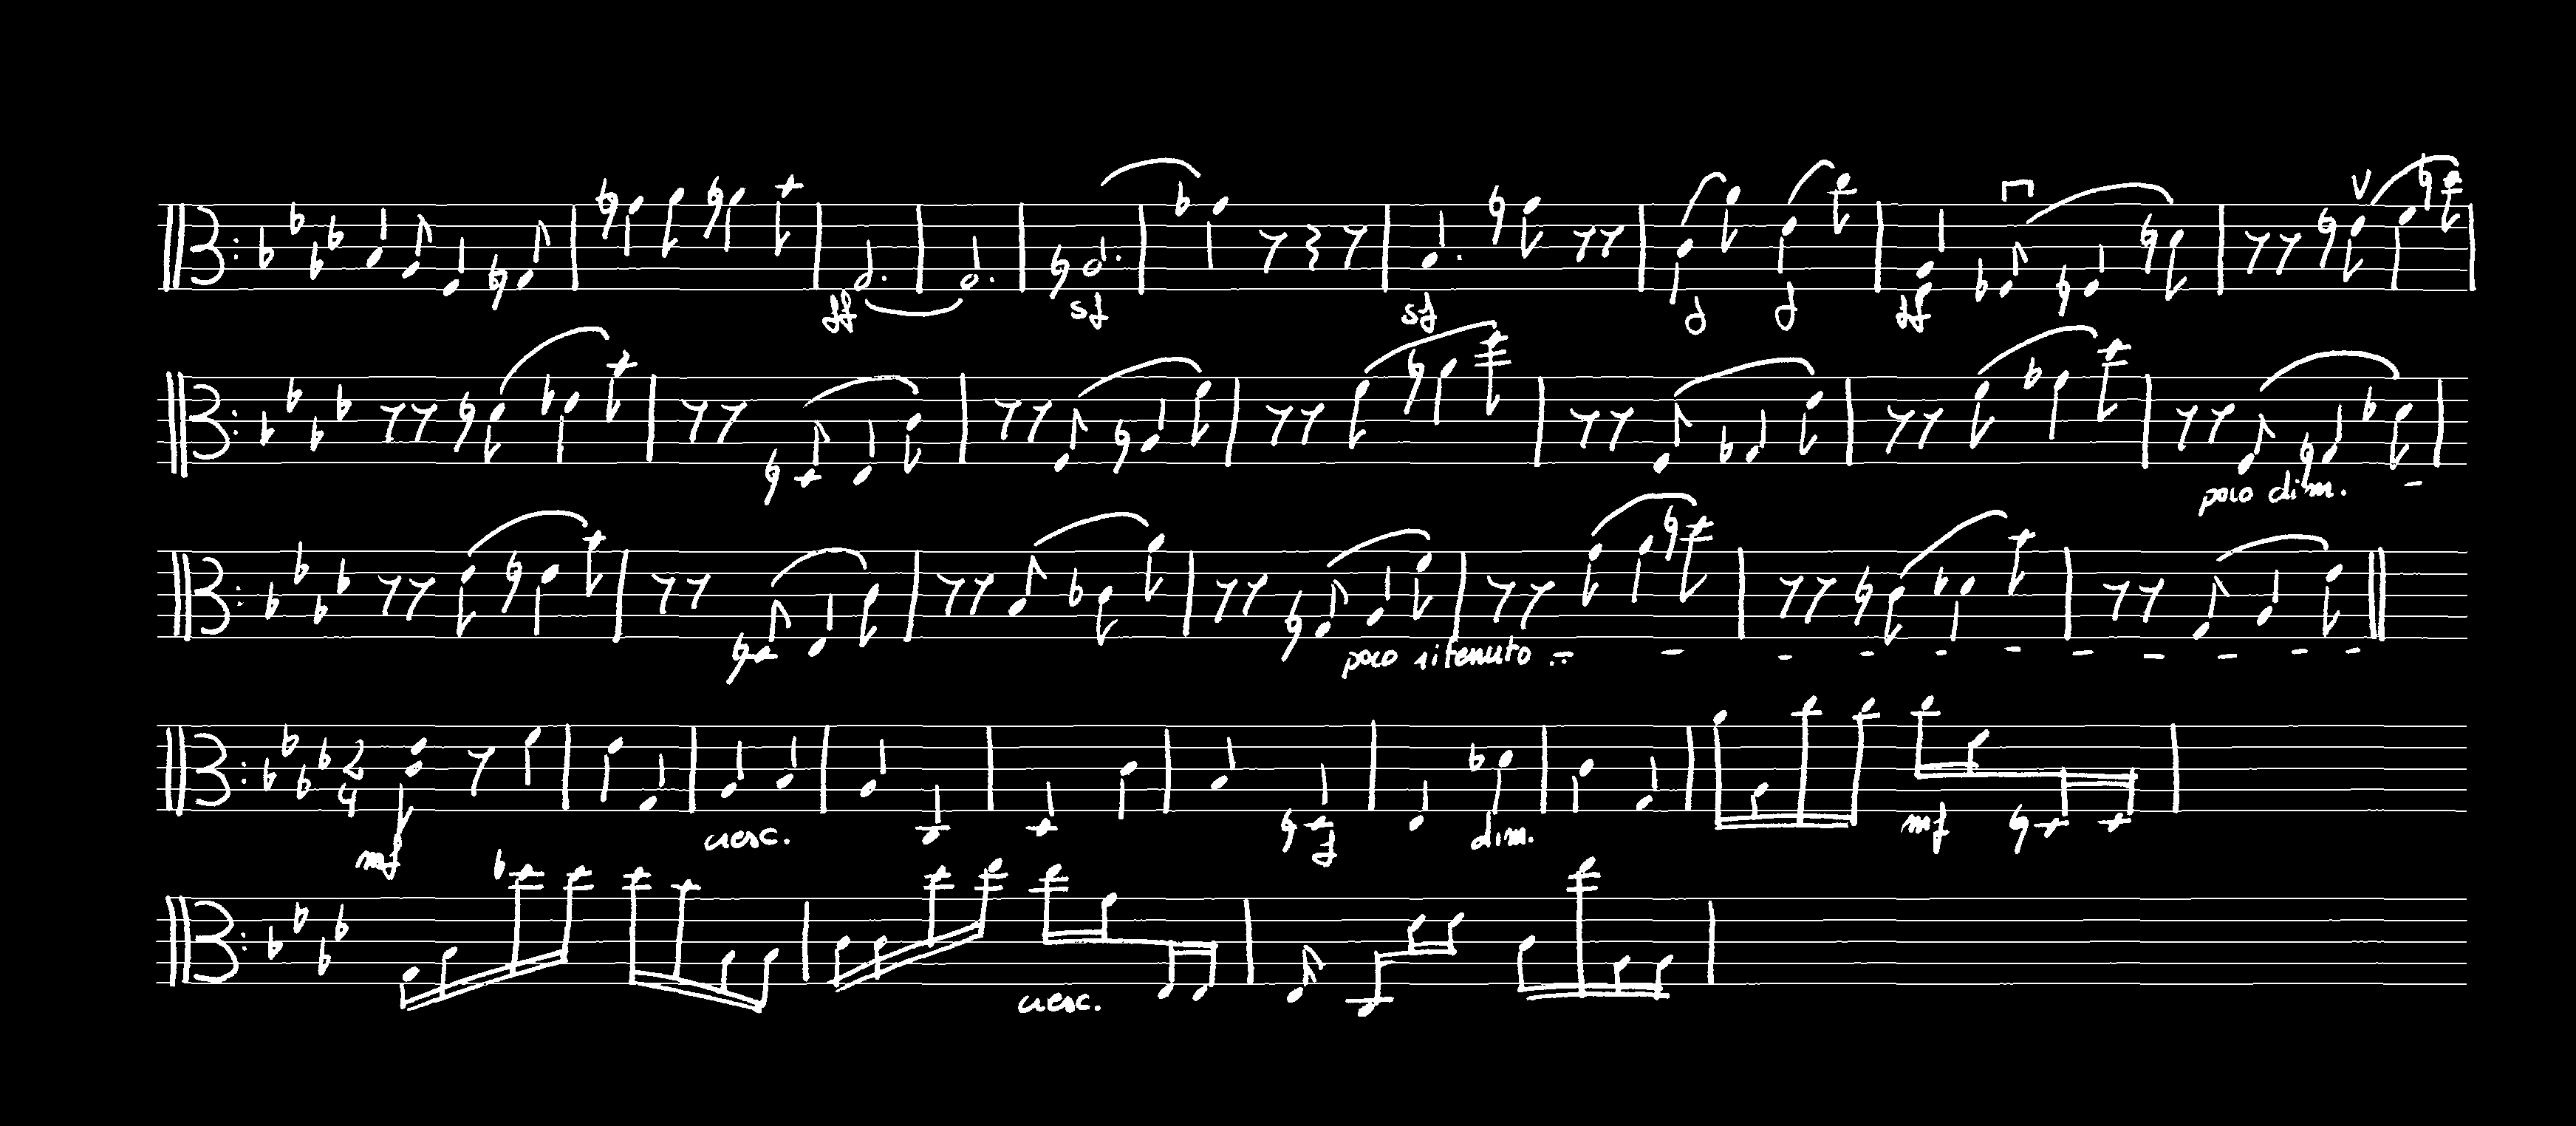 ff sf sf ff
poco dim. -
poco ritenuto .. - - - - - - - - - -
2 4
mf cresc. f dim. mf
cresc.